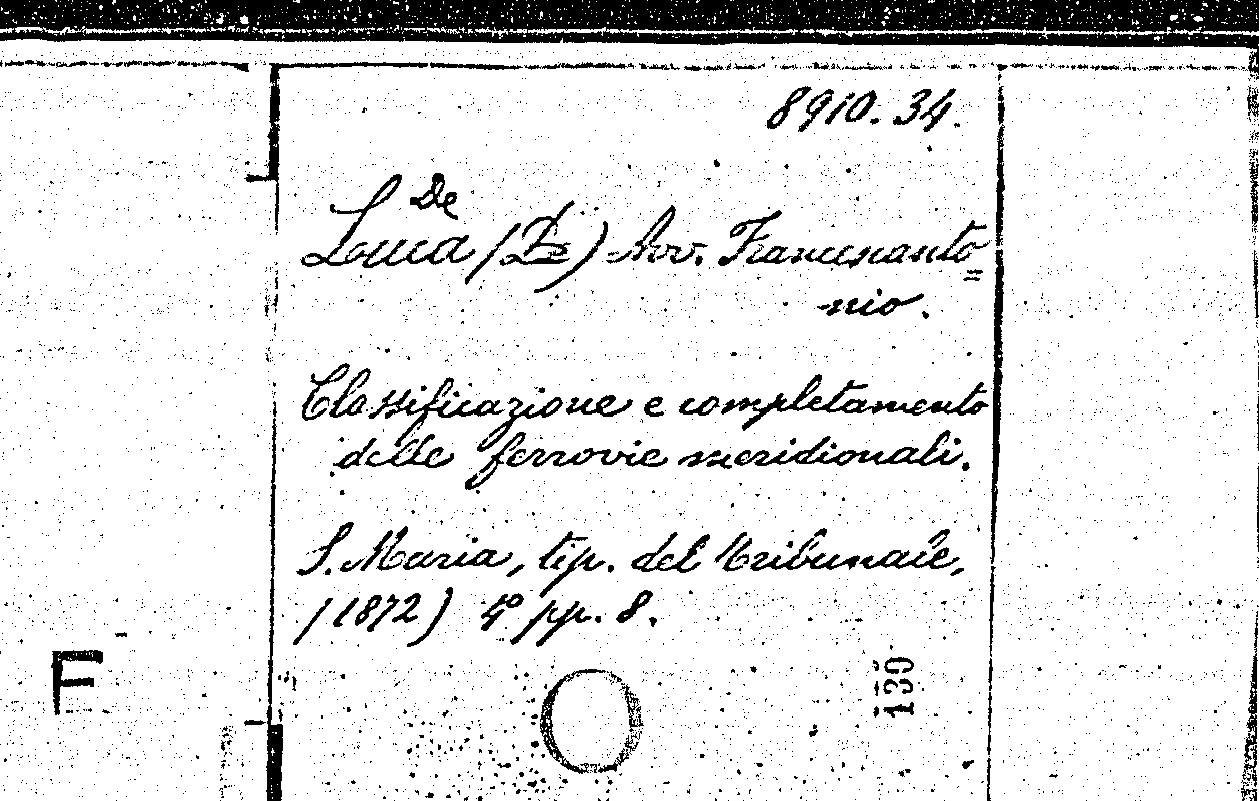 8910.34.
De
Luca (De) Avv. Francescanto=
nio.
Classificazione e completamento
delle ferrovie meridionali.
S. Maria, tip. del Tribunale,
(1872) 4º pp. 8.
F
139